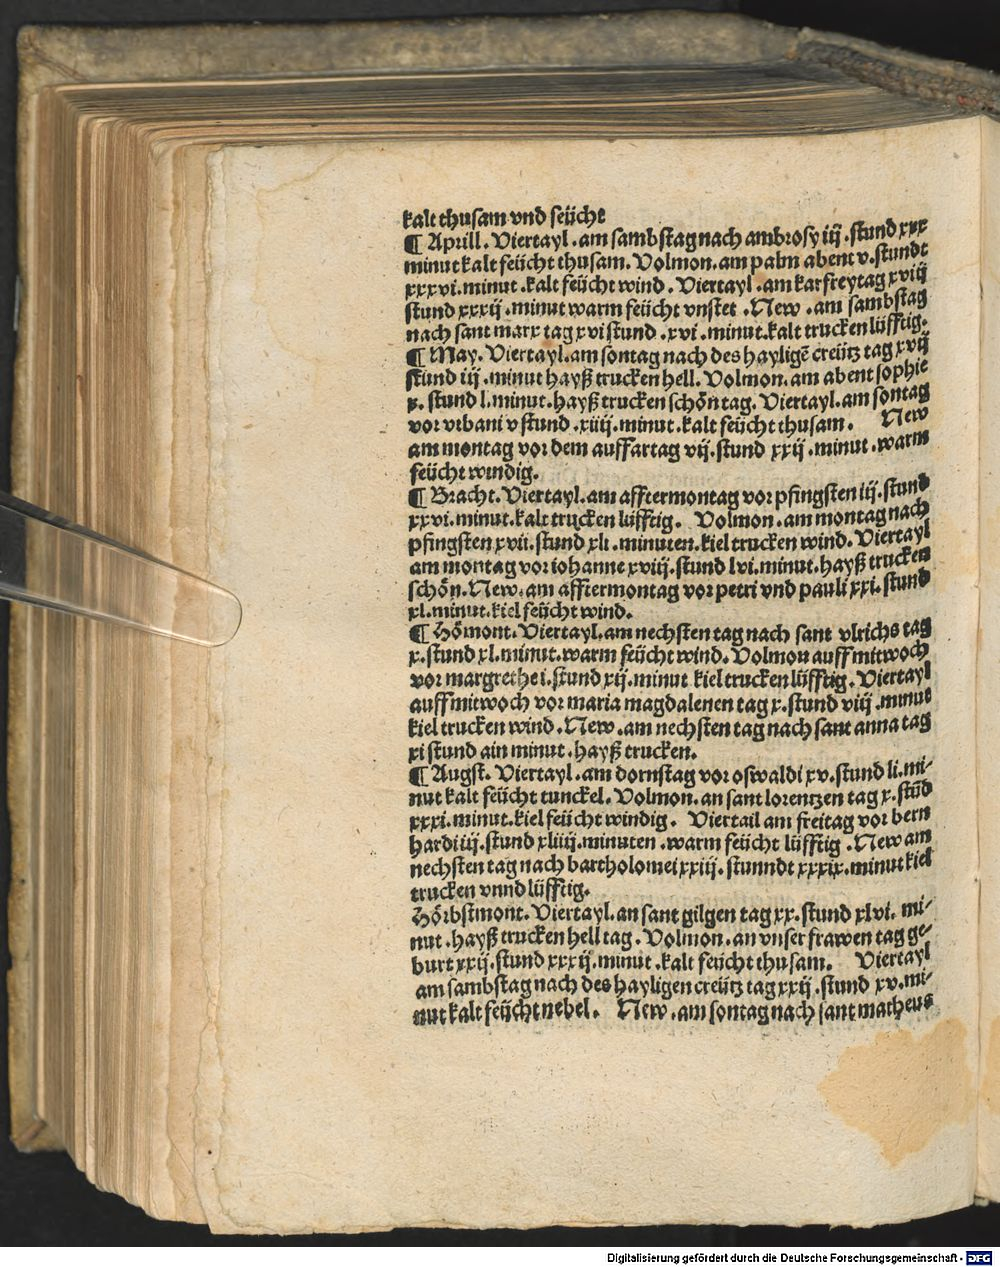 kalt thusam vnd feücht
¶ Aprill. Viertayl. am sambstag nach ambrosy iij. stund xxx
minut kalt feücht thusam. Volmon. am palm abent v. stundt
xxxvi. minut. kalt feücht wind. Viertayl. am karfreytag xviij
stund xxxij. minut warm feücht vnstet. New. am sambstag
nach sant marx tag xvi stund. xvi. minut. kalt trucken lüfftig.
¶ May. Viertayl. am sontag nach des hayligē creütz tag xvij
stund iij. minut hayß trucken hell. Volmon. am abent sophie
x. stund l. minut. hayß trucken schön tag. Viertayl. am sontag
vor vrbani v stund. xiiij. minut. kalt feücht thusam. New
am montag vor dem auffartag vij. stund xxij. minut. warm
feücht windig.
¶ Bracht. Viertayl. am afftermontag vor pfingsten iij. stund
xxvi. minut. kalt trucken lüfftig. Volmon. am montag nach
pfingsten xvii. stund xli. minuten. kiel trucken wind. Viertayl
am montag vor iohanne xviij. stund lvi. minut. hayß trucken
schön. New. am afftermontag vor petri vnd pauli xxi. stund
xl. minut. kiel feücht wind.
¶ Hömont. Viertayl. am nechsten tag nach sant vlrichs tag
x. stund xl. minut. warm feücht wind. Volmon auff mitwoch
vor margrethe i. stund xij. minut kiel trucken lüfftig. Viertayl
auff mitwoch vor maria magdalenen tag x. stund viij. minut
kiel trucken wind. New. am nechsten tag nach sant anna tag
xi stund ain minut. hayß trucken.
¶ Augst. Viertayl. am dornstag vor oswaldi xv. stund li. mi-
nut kalt feücht tunckel. Volmon. an sant lorentzen tag x. stūd
xxxi. minut. kiel feücht windig. Viertail am freitag vor bern
hardi iij. stund xliiij. minuten. warm feücht lüfftig. New am
nechsten tag nach bartholomei xxiij. stunndt xxxix. minut kiel
trucken vnnd lüfftig.
Hörbstmont. Viertayl. an sant gilgen tag xx. stund xlvi. mi-
nut. hayß trucken hell tag. Volmon. an vnser frawen tag ge-
burt xxij. stund xxxij. minut. kalt feücht thusam. Viertayl
am sambstag nach des hayligen creütz tag xxij. stund xv. mi-
nut kalt feücht nebel. New. am sontag nach sant matheus
Digitalisierung gefördert durch die Deutsche Forschungsgemeinschaft - DFG